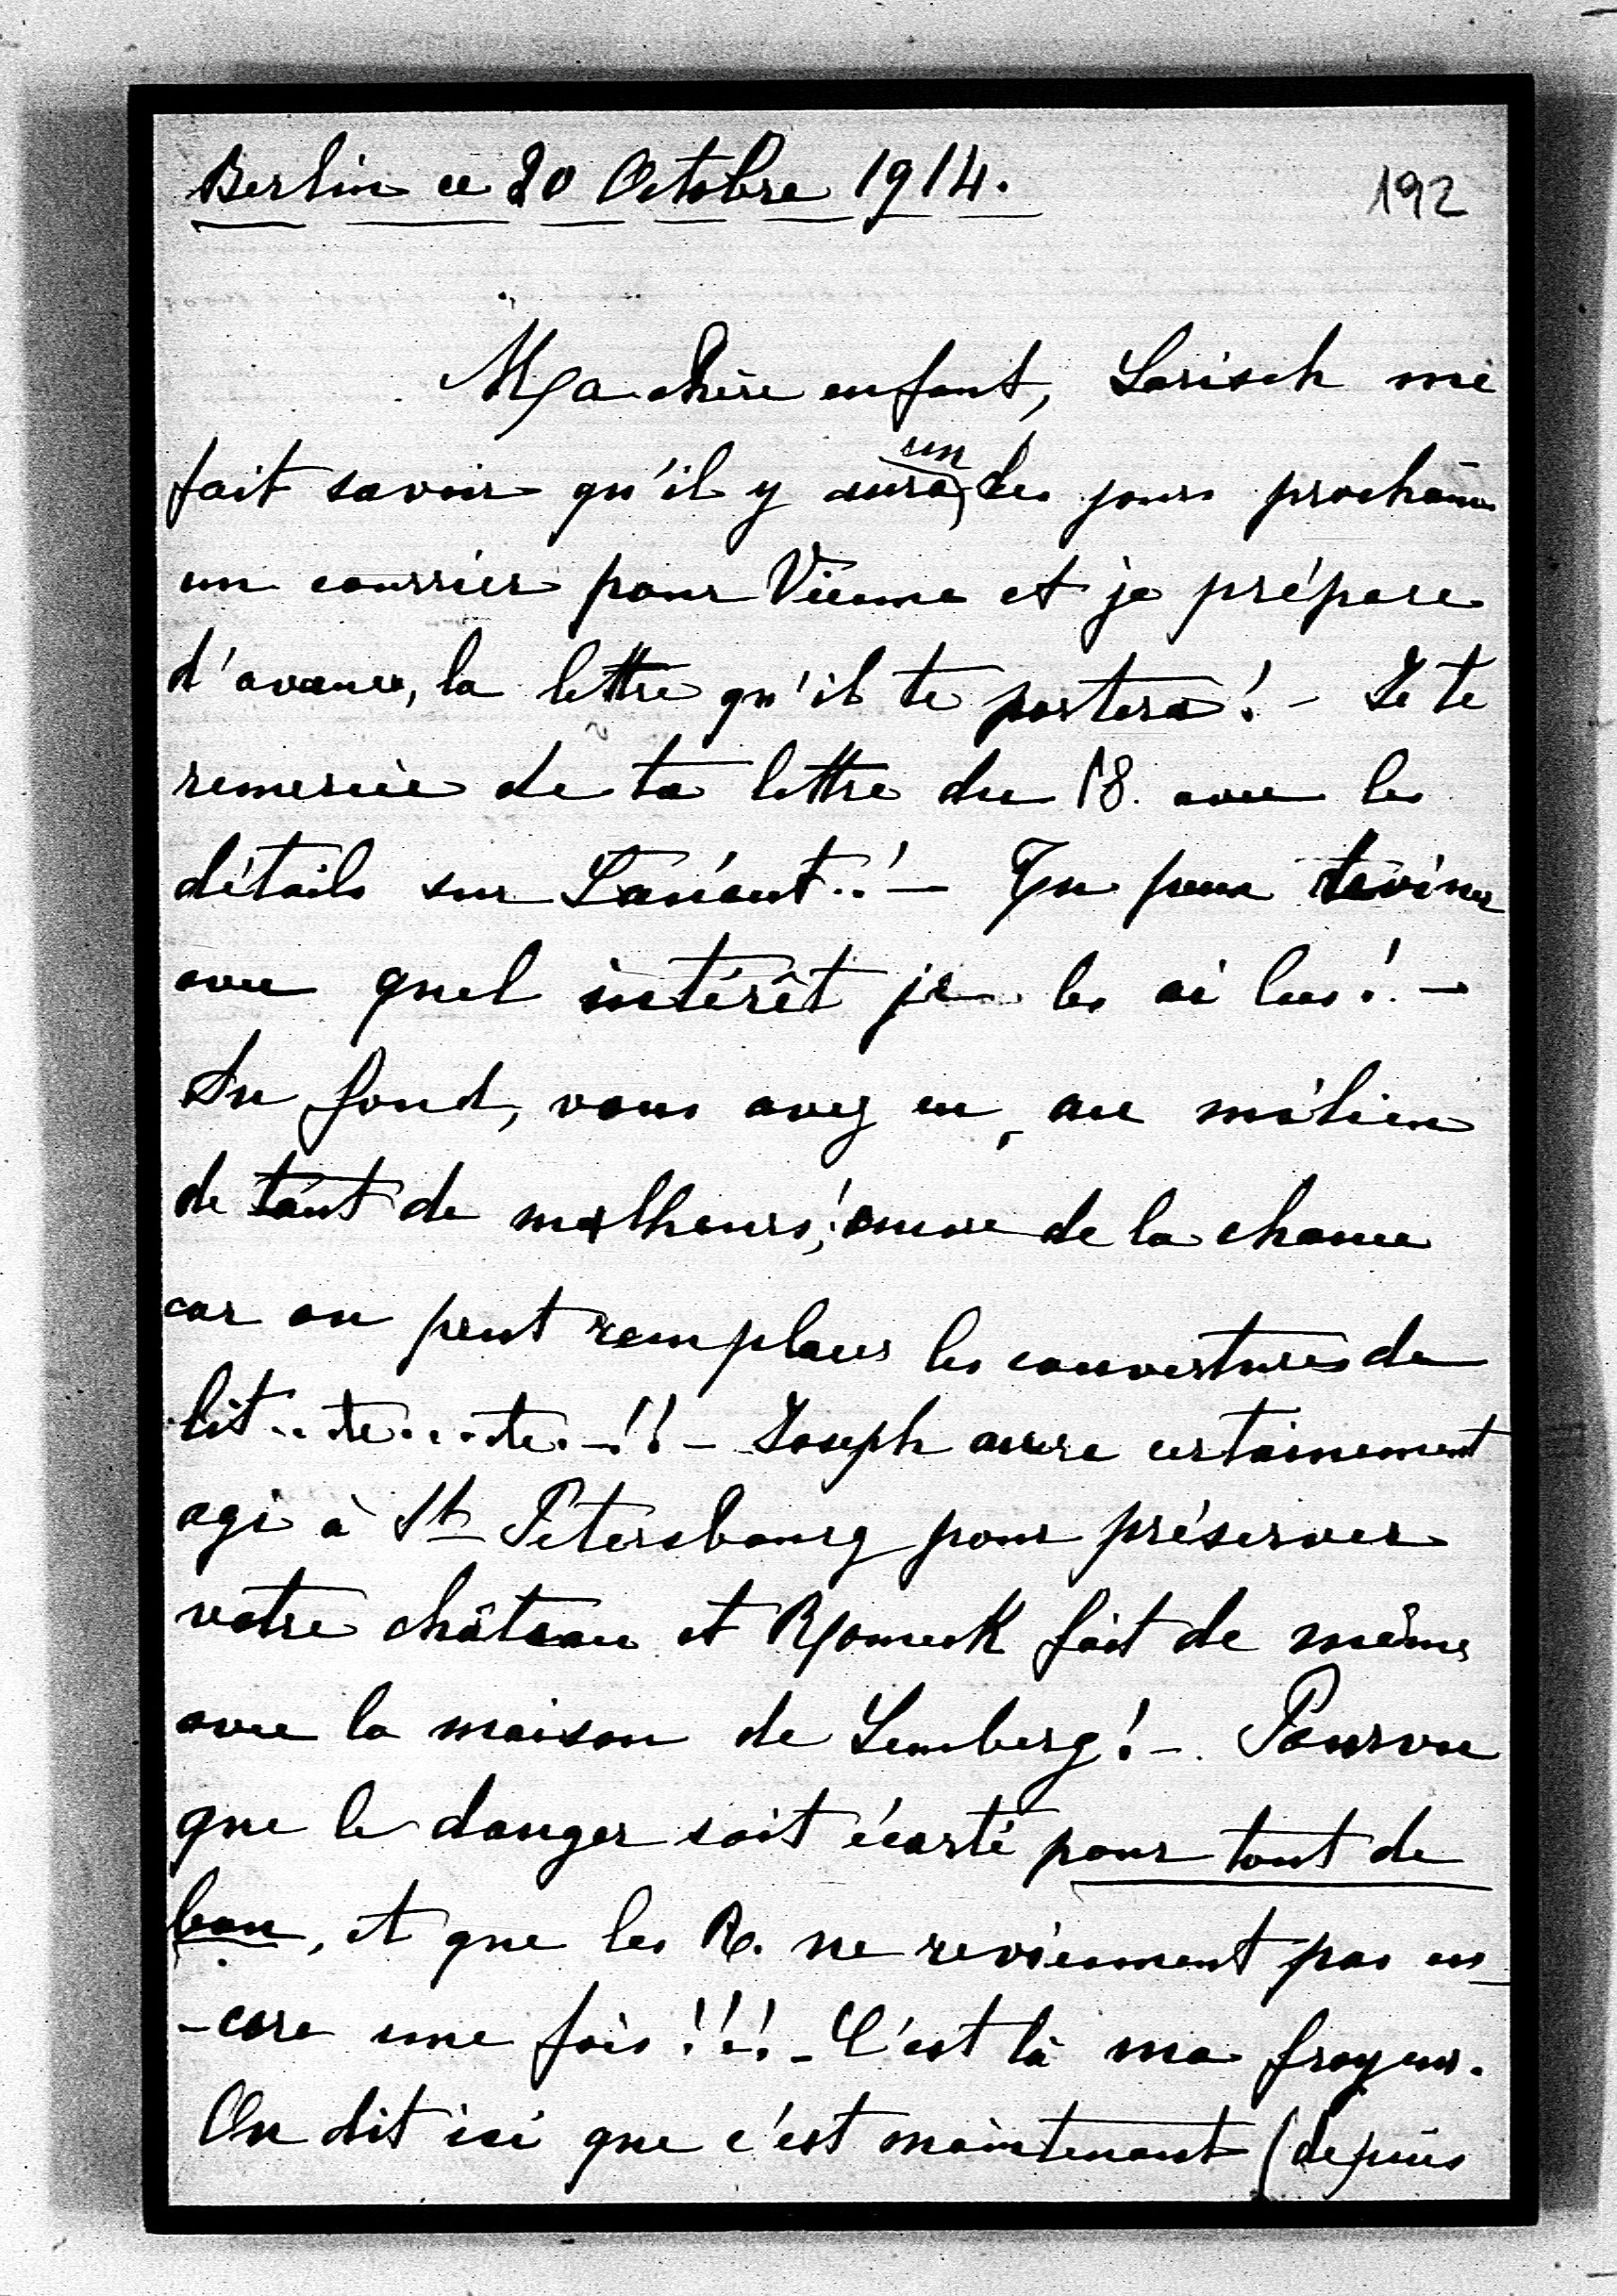 Berlin ce 20 Octobre 1914.
192
Ma chère enfant, Larisch me
fait savoir qu'il y aura, un des jours prochains
un courrier pour Vienne et je prépare
d'avance, la lettre qu'il te portera! - Je te
remercie de ta lettre du 18. avec les
détails sur Lancut..! — Tu peux deviner
avec quel intérêt je les ai lus! —
Au fond, vous avez eu, au milieu
de tant de malheurs,! encore de la chance
car on peut remplacer les couvertures de
lit...te...te.-!! - Joseph aura certainement
agi à St Petersbourg pour préserver
votre château et Romek fait de même
avec la maison de Lemberg! -. Pourvu
que le danger soit écarté pour tout de
bon, et que les R. ne reviennent pas en-
-core une fois!!! - C'est là ma frayeur.
On dit ici que c'est maintenant (depuis